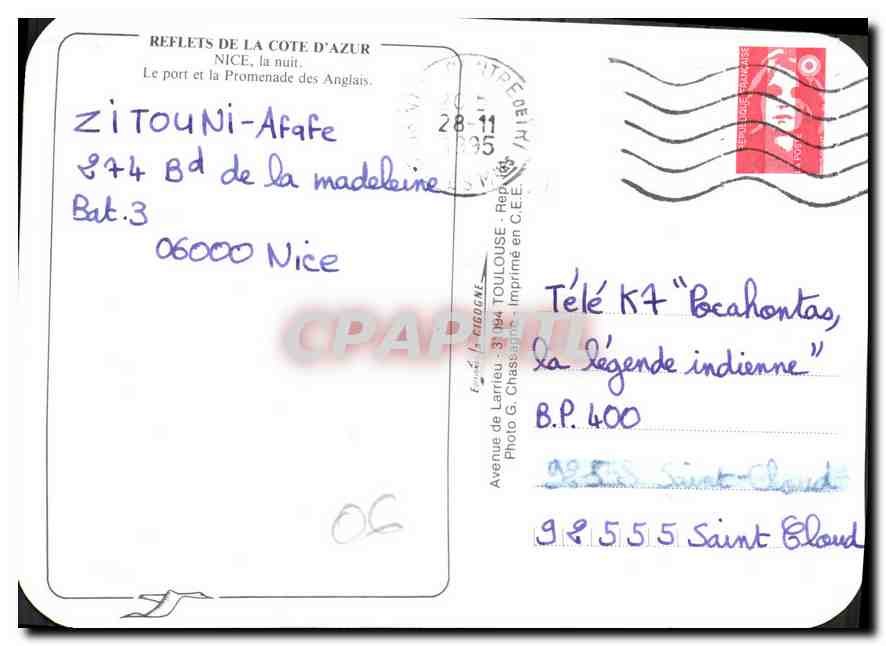 REFLETS DE LA COTE D'AZUR
NICE, la nuit.
Le port et la Promenade des Anglais.
ZITOUNI-Afafe
274 Bd de la madeleine
Bat.3
06000 Nice
06
28-11
1995
REPUBLIQUE FRANÇAISE
LA POSTE
Avenue de Larrieu - 31094 TOULOUSE -
Photo G. Chassagne - Imprimé en C.E.E.
CPARAMA
Télé K7 "Pocahontas,
la légende indienne"
B.P. 400
92555 Saint-Cloud
92555 Saint Cloud